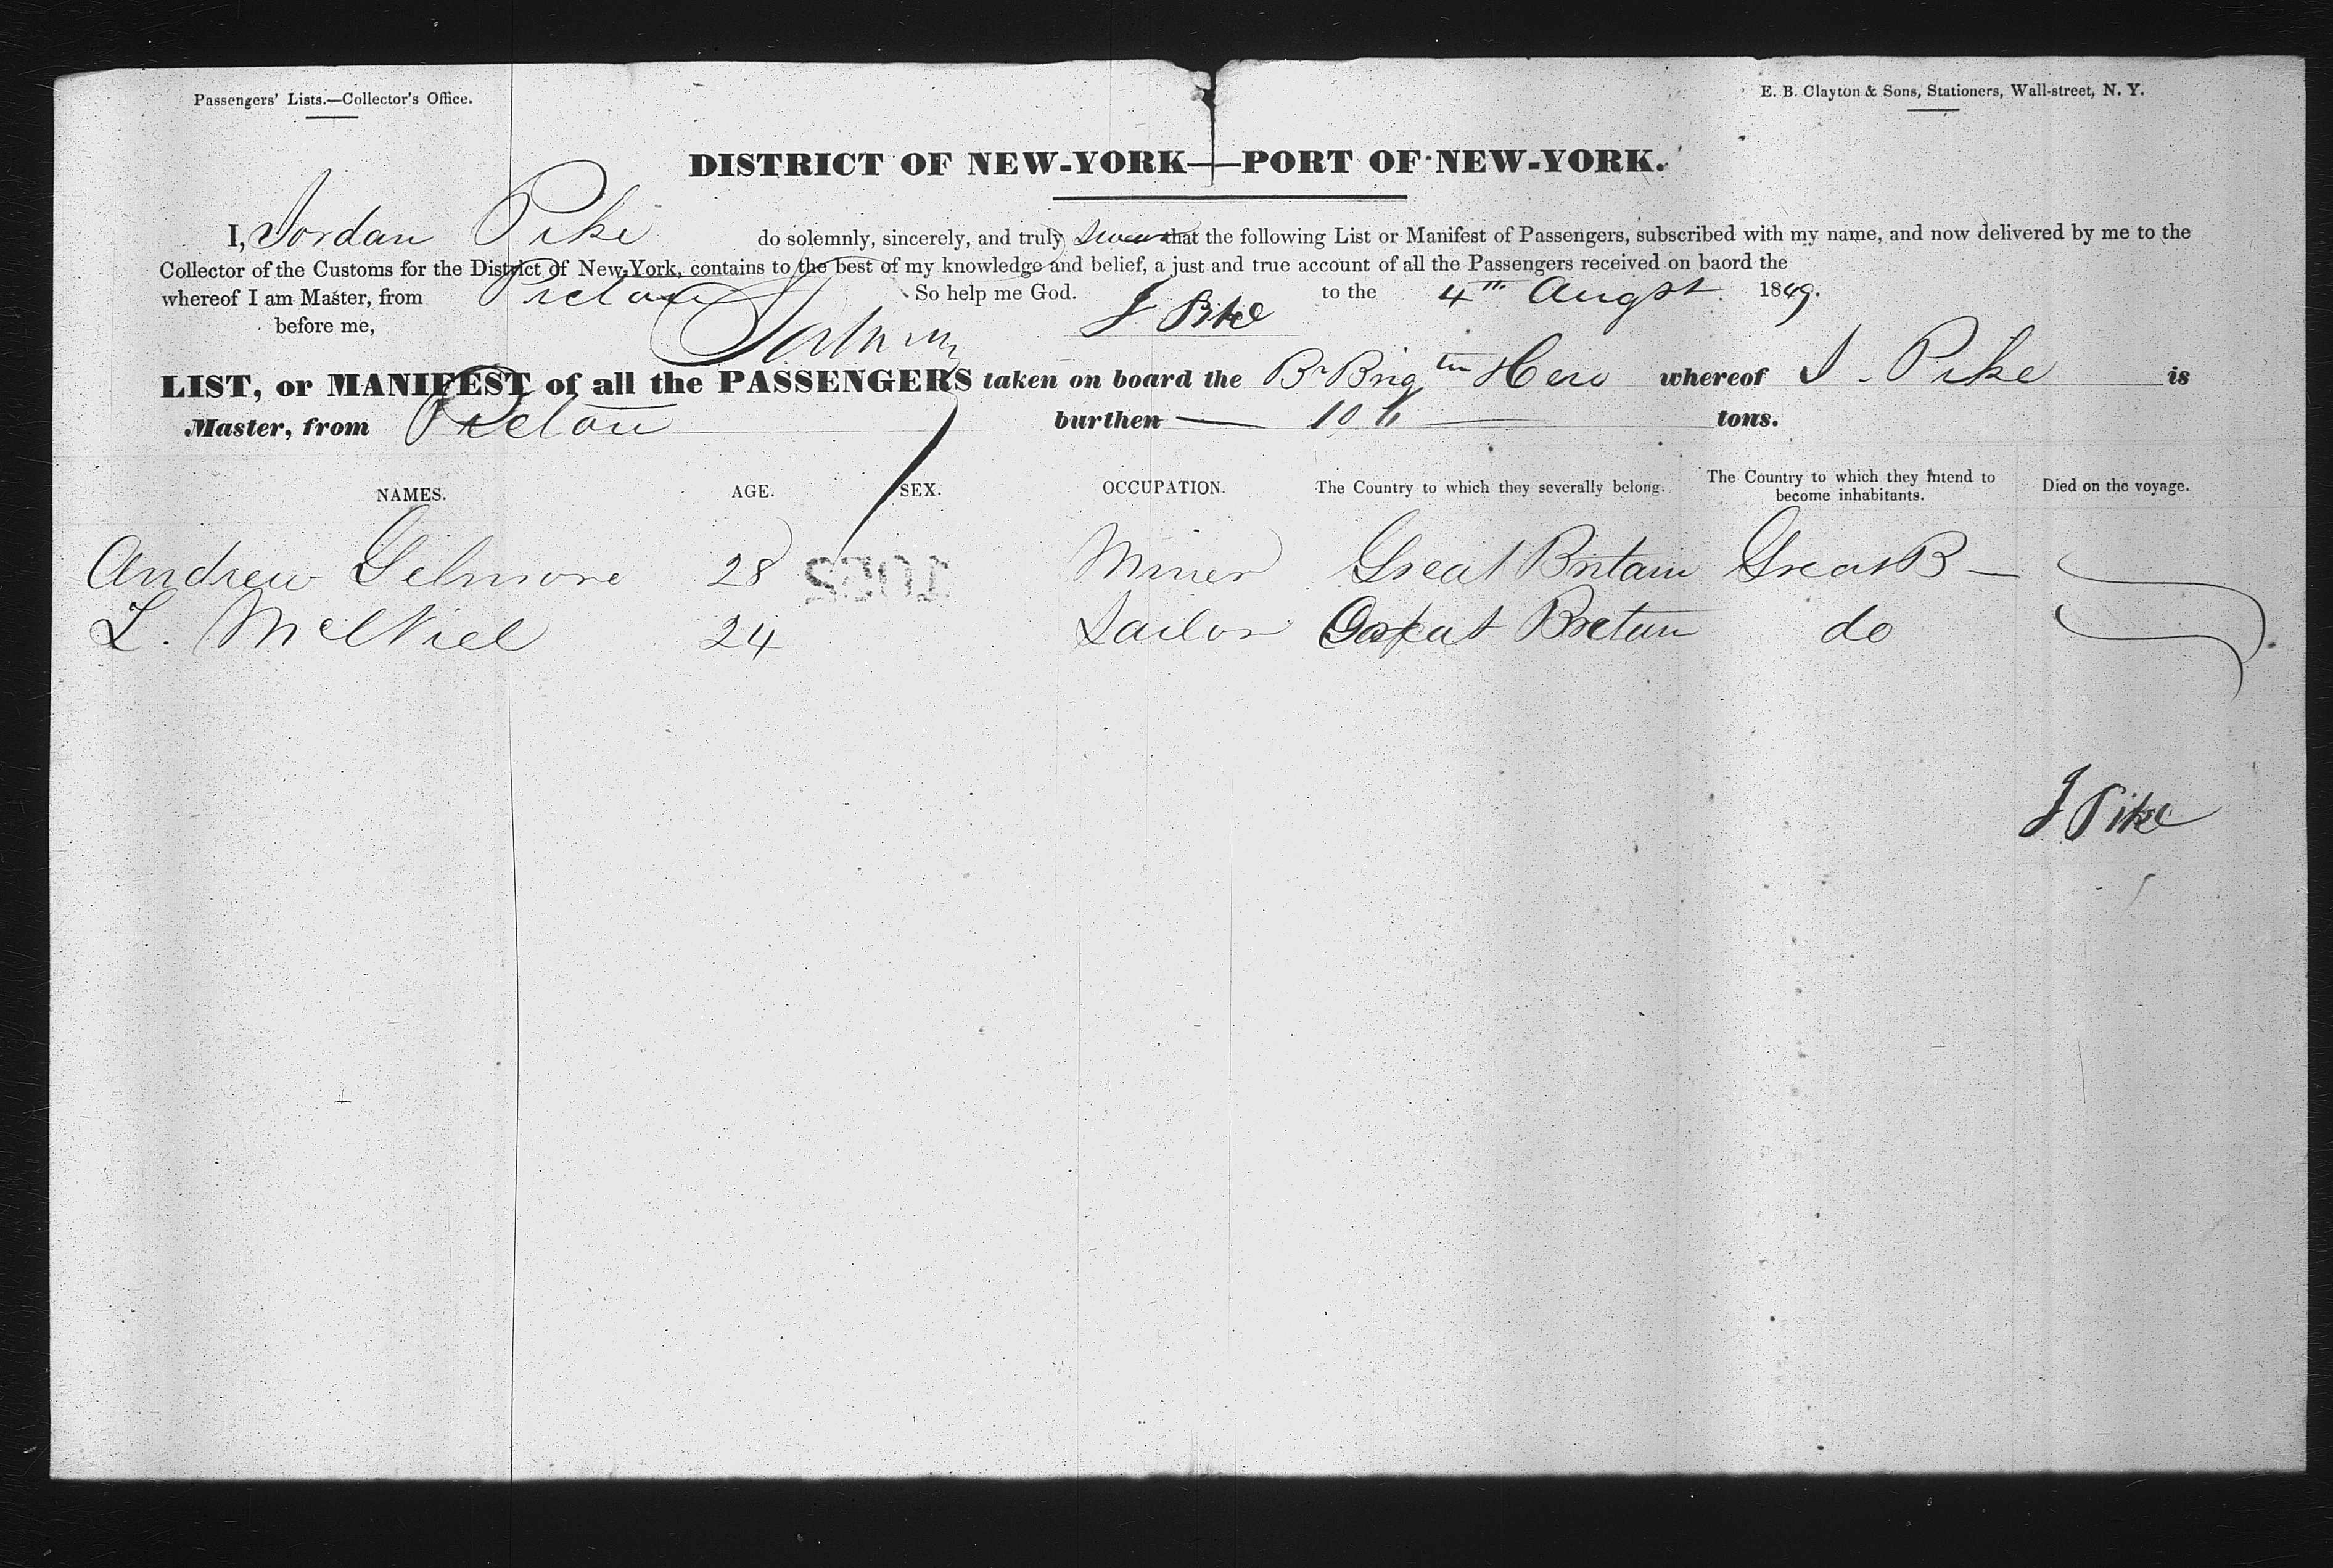 Passengers' Lists.—Collector's Office.
E. B. Clayton & Sons, Stationers, Wall-street, N. Y.
DISTRICT OF NEW-YORK—PORT OF NEW-YORK.
I, Jordan Pike do solemnly, sincerely, and truly swear that the following List or Manifest of Passengers, subscribed with my name, and now delivered by me to the
Collector of the Customs for the District of New-York, contains to the best of my knowledge and belief, a just and true account of all the Passengers received on baord the
whereof I am Master, from Pictou So help me God. to the 4th Augst 1849.
before me, J Pike
LIST, or MANIFEST of all the PASSENGERS taken on board the Br Brig tn Hero whereof J. Pike is
Master, from Pictou burthen — 106 — tons.
NAMES. AGE. SEX. OCCUPATION. The Country to which they severally belong. The Country to which they intend to become inhabitants. Died on the voyage.
Andrew Gilmore 28 Miner Great Britain Great B —
L. McNiel 24 Sailor Great Bretain do
J Pike